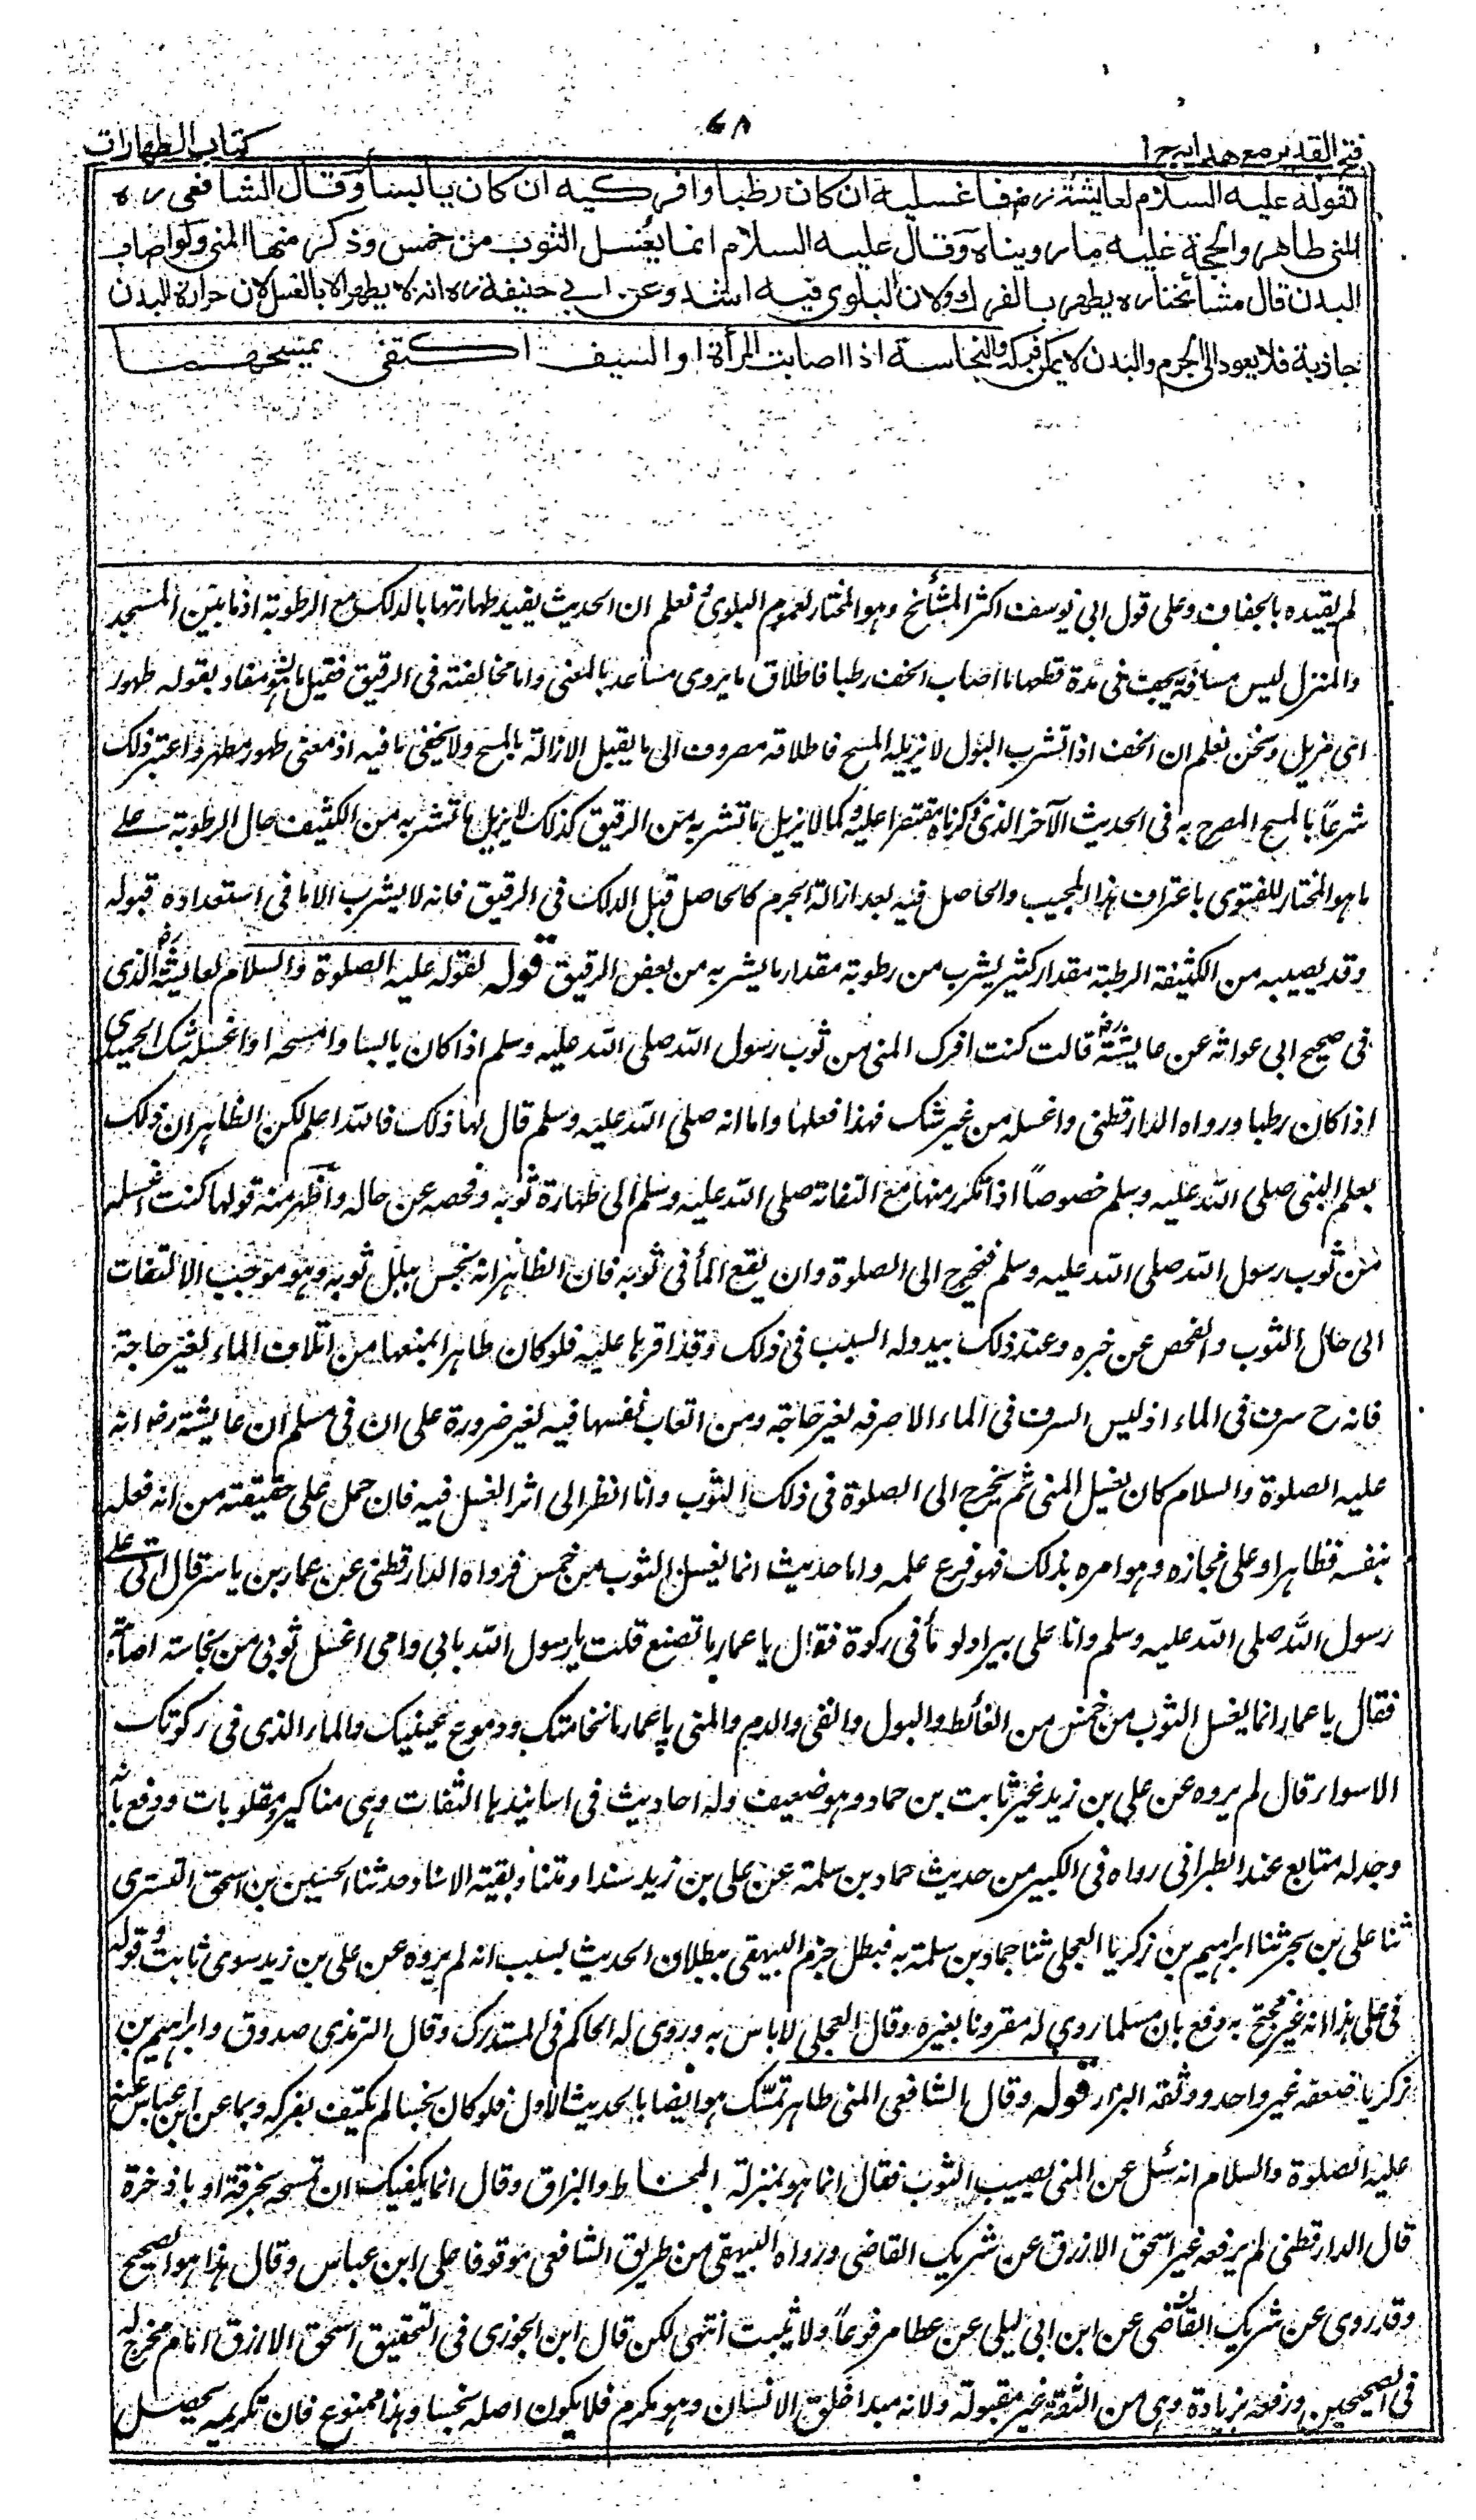 فتح القدير مع هدايه ج ١
٦٨
كتاب الطهارات
لقوله عليه السلام لعايشة رض فاغسليه ان كان رطبا وافركيه ان كان يابسا وقال الشافعى ره
المنى طاهر والحجة عليه ما رويناه وقال عليه السلام انما يغسل الثوب من خمس وذكر منها المنى ولو اصاب
البدن قال مشائخنا ره يطهر بالفرك لان البلوى فيه اشد وعن ابى حنيفة ره انه لا يطهر الا بالغسل لان حرارة البدن
جاذبة فلا يعود الى الجرم والبدن لا يمكن فركه والنجاسة اذا اصابت المرأة او السيف اكتفى بمسحهما
لم يقيده بالجفاف وعلى قول ابى يوسف اكثر المشائخ وهو المختار لعموم البلوى ونعلم ان الحديث يفيد طهارتها بالدلك مع الرطوبة اذ ما بين المسجد
والمنزل ليس مسافة يجف فى مدة قطعها ما اصاب الخف رطبا فاطلاق ما يروى مساعد بالمعنى واما مخالفته فى الرقيق فقيل هو مفاد بقوله طهور
اى مزيل ونحن نعلم ان الخف اذا تشرب البول لا يزيله المسح فاطلاقه مصروف الى ما يقبل الازالة بالمسح ولا يخفى ما فيه اذ معنى طهور مطهر واعتبر ذلك
شرعا بالمسح المصرح به فى الحديث الآخر الذى ذكرناه مقتصرا عليه وكما لا يزيل ما تشربه من الرقيق كذلك لا يزيل ما تشربه من الكثيف حال الرطوبة على
ما هو المختار للفتوى باعتراف هذا المجيب والحاصل فيه بعد ازالة الجرم كالحاصل قبل الدلك فى الرقيق فانه لا يشرب الا ما فى استعداده قبوله
وقد يصيبه من الكثيفة الرطبة مقدار كثير يشرب من رطوبته مقدار ما يشربه من بعض الرقيق قوله لقوله عليه الصلوة والسلام لعايشة رض الذى
فى صحيح ابى عوانه عن عايشة رض قالت كنت افرك المنى من ثوب رسول الله صلى الله عليه وسلم اذا كان يابسا وامسحه او اغسله شك الحميدى
اذا كان رطبا ورواه الدارقطنى واغسله من غير شك فهذا فعلها واما انه صلى الله عليه وسلم قال لها ذلك فالله اعلم لكن الظاهر ان ذلك
بعلم النبى صلى الله عليه وسلم خصوصاً اذا تكرر منها مع التفاته صلى الله عليه وسلم الى طهارة ثوبه وفحصه عن حاله واظهر منه قولها كنت اغسله
من ثوب رسول الله صلى الله عليه وسلم فيخرج الى الصلوة وان بقع الماء فى ثوبه فان الظاهر انه يحس ببلل ثوبه وهو موجب الالتفات
الى حال الثوب والفحص عن خبره وعند ذلك يبدو له السبب فى ذلك وقد اقرها عليه فلو كان طاهرا لمنعها من اتلاف الماء لغير حاجة
فانه ح سرف فى الماء اذ ليس السرف فى الماء الا صرفه لغير حاجة ومن اتعاب نفسها فيه لغير ضرورة على ان فى مسلم ان عايشة رض انه
عليه الصلوة والسلام كان يغسل المنى ثم يخرج الى الصلوة فى ذلك الثوب وانا انظر الى اثر الغسل فيه فان حمل على حقيقته من انه فعله
بنفسه فظاهر او على مجازه وهو امره بذلك فهو فرع علمه واما حديث انما يغسل الثوب من خمس فرواه الدارقطنى عن عمار بن ياسر قال اتى على
رسول الله صلى الله عليه وسلم وانا على بير ادلو ماء فى ركوة فقال يا عمار ما تصنع قلت يا رسول الله بابى وامى اغسل ثوبى من نجاسة اصابته
فقال يا عمار انما يغسل الثوب من خمس من الغائط والبول والقى والدم والمنى يا عمار ما نخامتك ودموع عينيك والماء الذى فى ركوتك
الا سواء قال لم يروه عن على بن زيد غير ثابت بن حماد وهو ضعيف وله احاديث فى اسانيدها الثقات وهى مناكير ومقلوبات ودفع بانه
وجد له متابع عند الطبرانى رواه فى الكبير من حديث حماد بن سلمة عن على بن زيد سندا ومتنا وبقية الاسناد حدثنا الحسين بن اسحق التسترى
ثنا على بن بحر ثنا ابراهيم بن زكريا العجلى ثنا حماد بن سلمة به فبطل جزم البيهقى ببطلان الحديث بسبب انه لم يروه عن على بن زيد سوى ثابت وقوله
فى على هذا انه غير محتج به دفع بان مسلما روى له مقرونا بغيره وقال العجلى لا باس به وروى له الحاكم فى المستدرك وقال الترمذى صدوق وابراهيم بن
زكريا ضعفه غير واحد ووثقه البزار قوله وقال الشافعى المنى طاهر تمسك هو ايضا بالحديث الاول فلو كان نجسا لم يكتف بفركه وبما عن ابن عباس عنه
عليه الصلوة والسلام انه سئل عن المنى يصيب الثوب فقال انما هو بمنزلة المخاط والبزاق وقال انما يكفيك ان تمسحه بخرقة او باذخرة
قال الدارقطنى لم يرفعه غير اسحق الازرق عن شريك القاضى ورواه البيهقى من طريق الشافعى موقوفا على ابن عباس وقال هذا هو الصحيح
وقد روى عن شريك القاضى عن ابن ابى ليلى عن عطا مرفوعاً ولا يثبت انتهى لكن قال ابن الجوزى فى التحقيق اسحق الازرق امام مخرج له
فى الصحيحين ورفعه زيادة وهى من الثقة غير مقبولة ولانه مبدا خلق الانسان وهو مكرم فلا يكون اصله نجسا وهذا ممنوع فان تكريمه يحصل